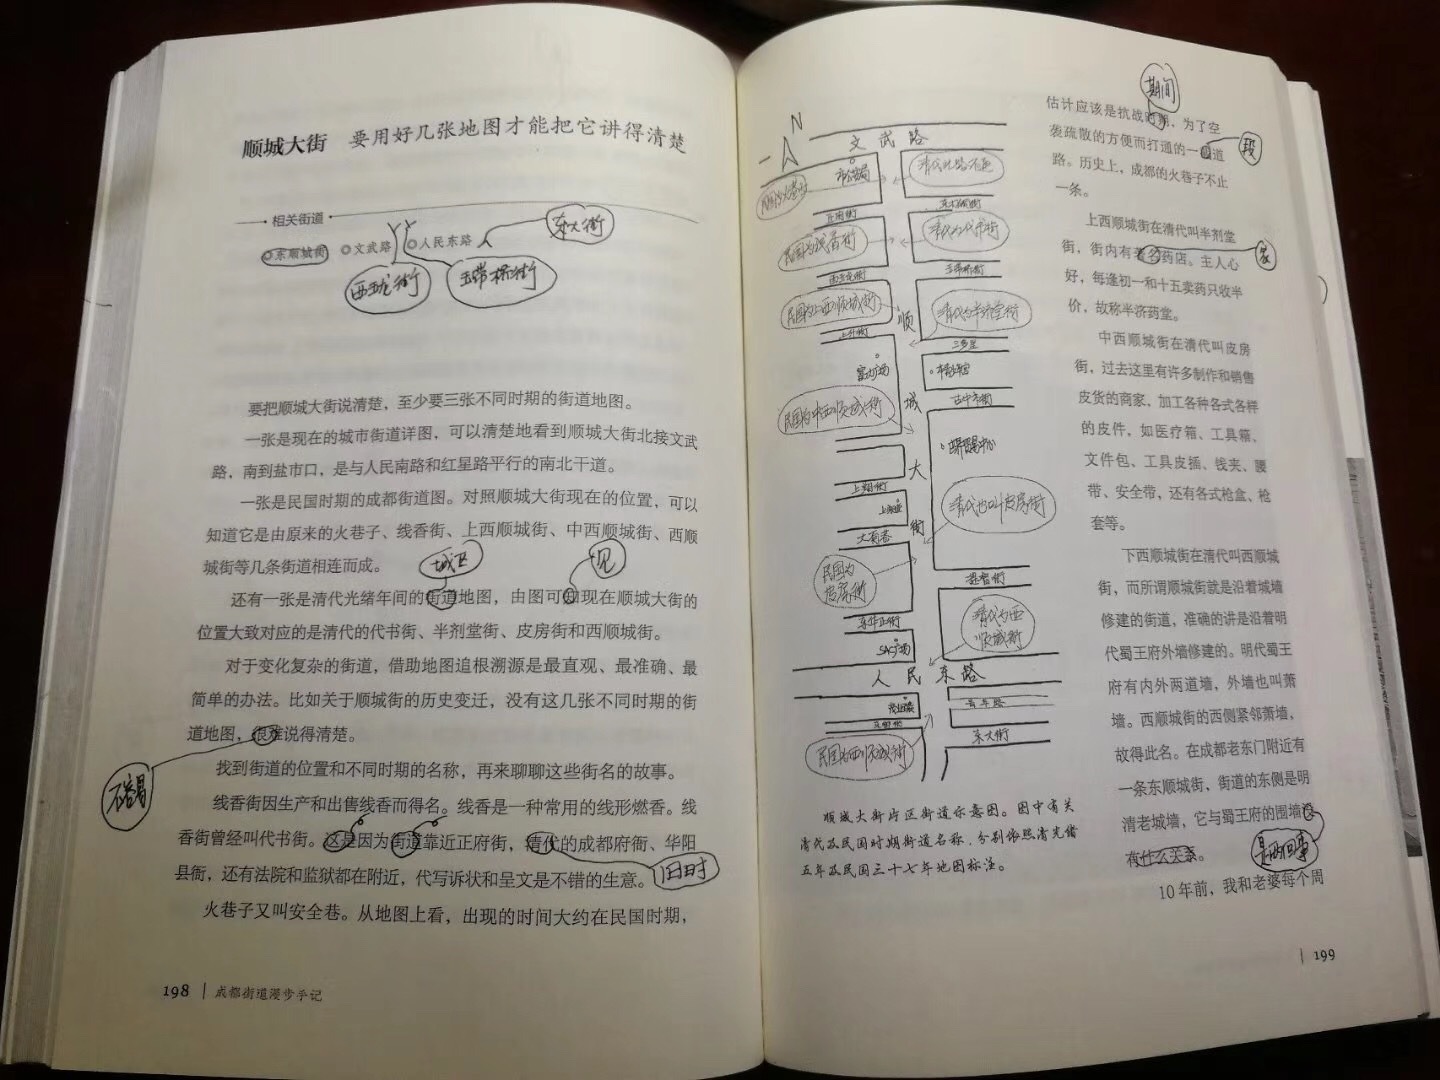 顺城大街 要用好几张地图才能把它讲得清楚
相关街道
东顺城街 文武路 人民东路
东大街
西玉龙街
玉带桥街
要把顺城大街说清楚，至少要三张不同时期的街道地图。
一张是现在的城市街道详图，可以清楚地看到顺城大街北接文武
路，南到盐市口，是与人民南路和红星路平行的南北干道。
一张是民国时期的成都街道图。对照顺城大街现在的位置，可以
知道它是由原来的火巷子、线香街、上西顺城街、中西顺城街、西顺
城街等几条街道相连而成。
城区
见
还有一张是清代光绪年间的街道地图，由图可知现在顺城大街的
位置大致对应的是清代的代书街、半剂堂街、皮房街和西顺城街。
对于变化复杂的街道，借助地图追根溯源是最直观、最准确、最
简单的办法。比如关于顺城街的历史变迁，没有这几张不同时期的街
道地图，很难说得清楚。
不容易
找到街道的位置和不同时期的名称，再来聊聊这些街名的故事。
线香街因生产和出售线香而得名。线香是一种常用的线形燃香。线
香街曾经叫代书街。这是因为街道靠近正府街，清代的成都府衙、华阳
县衙，还有法院和监狱都在附近，代写诉状和呈文是不错的生意。
旧时
火巷子又叫安全巷。从地图上看，出现的时间大约在民国时期，
198 成都街道漫步手记
N
文武路
市公安局
清代此路不通
民国为火巷子
正府街
民国为线香街
清代为代书街
西玉龙街
玉带桥街
民国为上西顺城街
顺
清代为半济堂街
上升街
三多里
富力广场
城
民国为中西顺城街
古中市街
大
上翔街
清代也叫皮房街
街
大有巷
提督街
民国为
皮房街
清代为西
顺城街
东华正街
SAC广场
人民东路
青年路
东大街
民国为西顺城街
顺城大街片区街道示意图。图中有关
清代及民国时期街道名称，分别依照清光绪
五年及民国三十七年地图标注。
期间
估计应该是抗战时期，为了空
袭疏散的方便而打通的一条道
段
路。历史上，成都的火巷子不止
一条。
上西顺城街在清代叫半剂堂
街，街内有著名药店。主人心
家
好，每逢初一和十五卖药只收半
价，故称半济药堂。
中西顺城街在清代叫皮房
街，过去这里有许多制作和销售
皮货的商家，加工各种各式各样
的皮件，如医疗箱、工具箱、
文件包、工具皮插、钱夹、腰
带、安全带，还有各式枪盒、枪
套等。
下西顺城街在清代叫西顺城
街，而所谓顺城街就是沿着城墙
修建的街道，准确的讲是沿着明
代蜀王府外墙修建的。明代蜀王
府有内外两道墙，外墙也叫萧
墙。西顺城街的西侧紧邻萧墙，
故得此名。在成都老东门附近有
一条东顺城街，街道的东侧是明
清老城墙，它与蜀王府的围墙没
有什么关系。
是两回事
10年前，我和老婆每个周
199